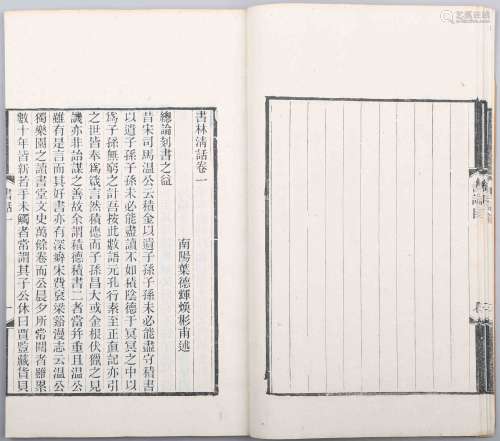 書林清話卷一
南陽葉德輝煥彬甫述
總論刻書之益
昔宋司馬溫公云積金以遺子孫子孫未必能盡守積書
以遺子孫子孫未必能盡讀不如積陰德於冥冥之中以
爲子孫無窮之計吾按此數語元孔行素至正直記亦引
之世皆奉爲箴言然積德而子孫昌大或金根伏獵之見
譏亦非詒謀之善故余謂積德積書二者當並重且溫公
雖有是言而其好書亦有深癖宋費袞梁谿漫志云溫公
獨樂園之讀書堂文史萬餘卷而公晨夕所常閱者雖累
數十年皆新若手未觸者嘗謂其子公休曰賈豎藏貨貝
書話一
一